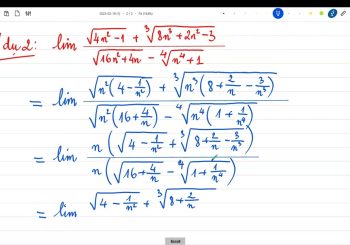 du 2: lim (√(4n²-1) + ∛(8n³+2n²-3)) / (√(16n²+4n) - ∜(n⁴+1))
= lim (√(n²(4-1/n²)) + ∛(n³(8+2/n-3/n³))) / (√(n²(16+4/n)) - ∜(n⁴(1+1/n⁴)))
= lim n(√(4-1/n²) + ∛(8+2/n-3/n³)) / n(√(16+4/n) - ∜(1+1/n⁴))
= lim √(4-1/n²) + ∛(8+2/n